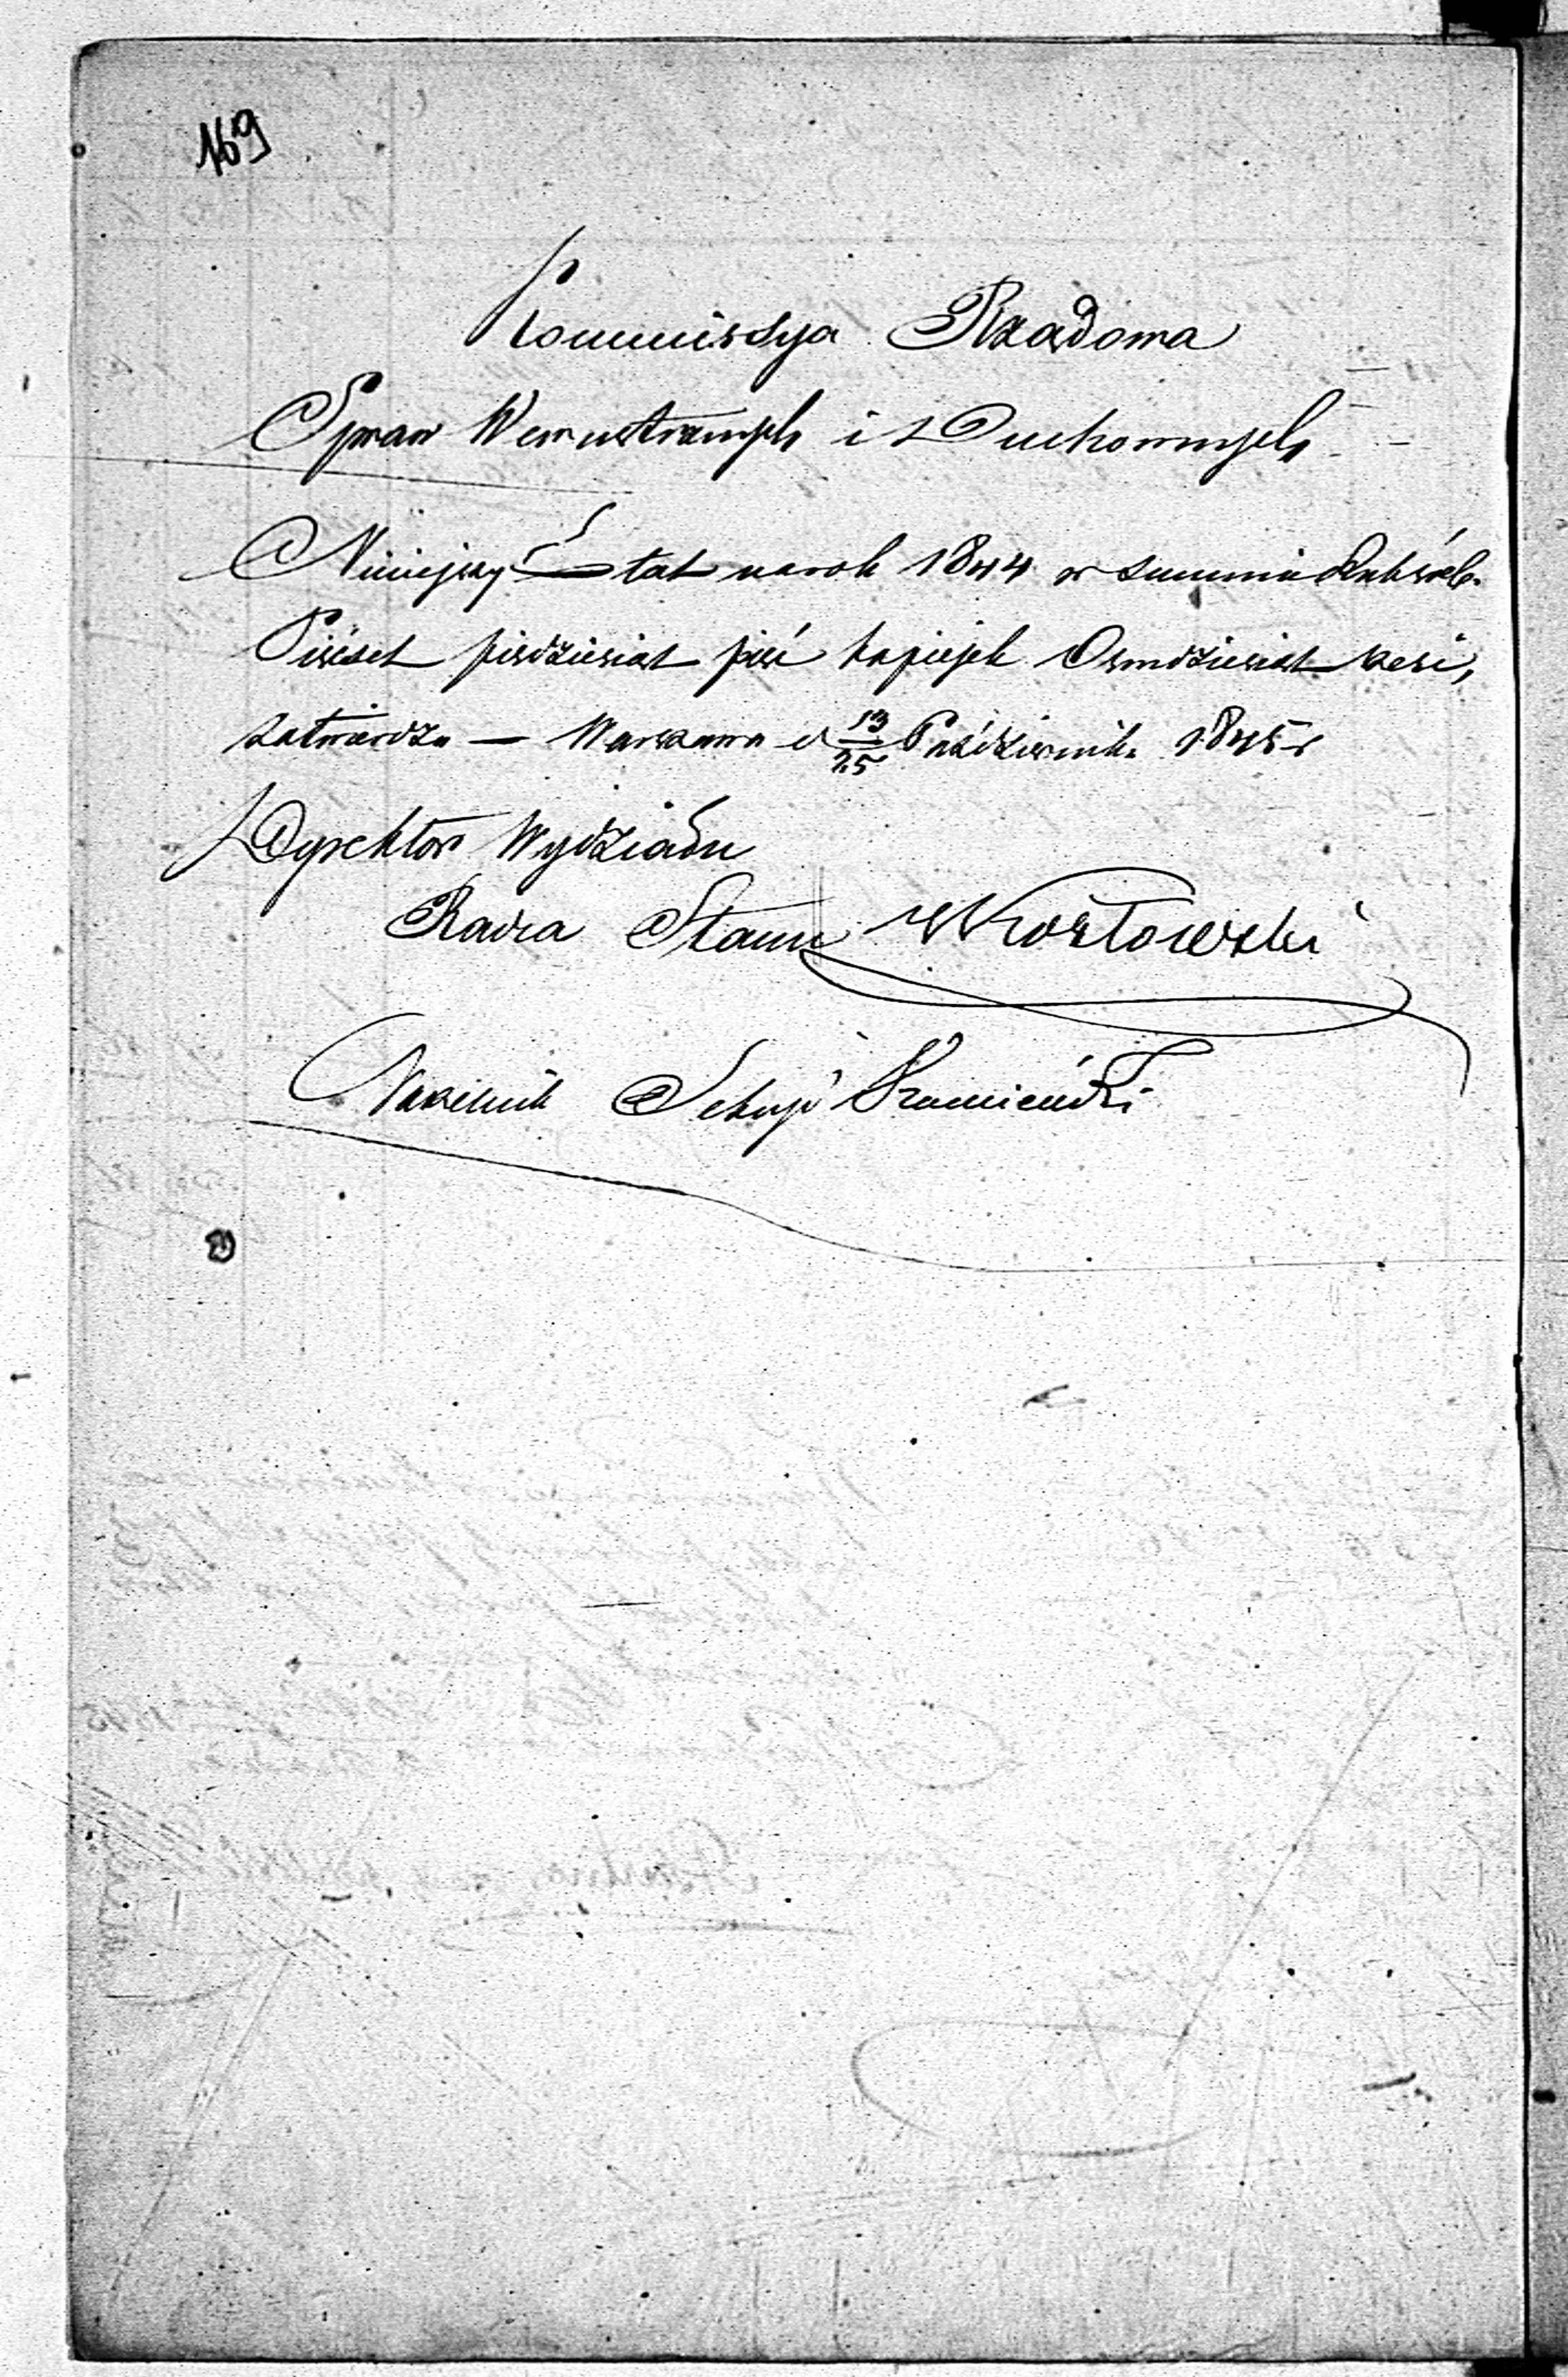 169
Kommissya Rządowa
Spraw Wewnętrznych i Duchownych
Niniejszy Etat na rok 1844 w summie Rub. sreb.
Pięćset pięćdziesiąt pięć kopiejek Osmdziesiąt sześć,
zatwierdza — Warszawa d 13/25 Październik. 1845 r
Dyrektor Wydziału
Radca Stanu Kozłowski
Naczelnik Sekcyi